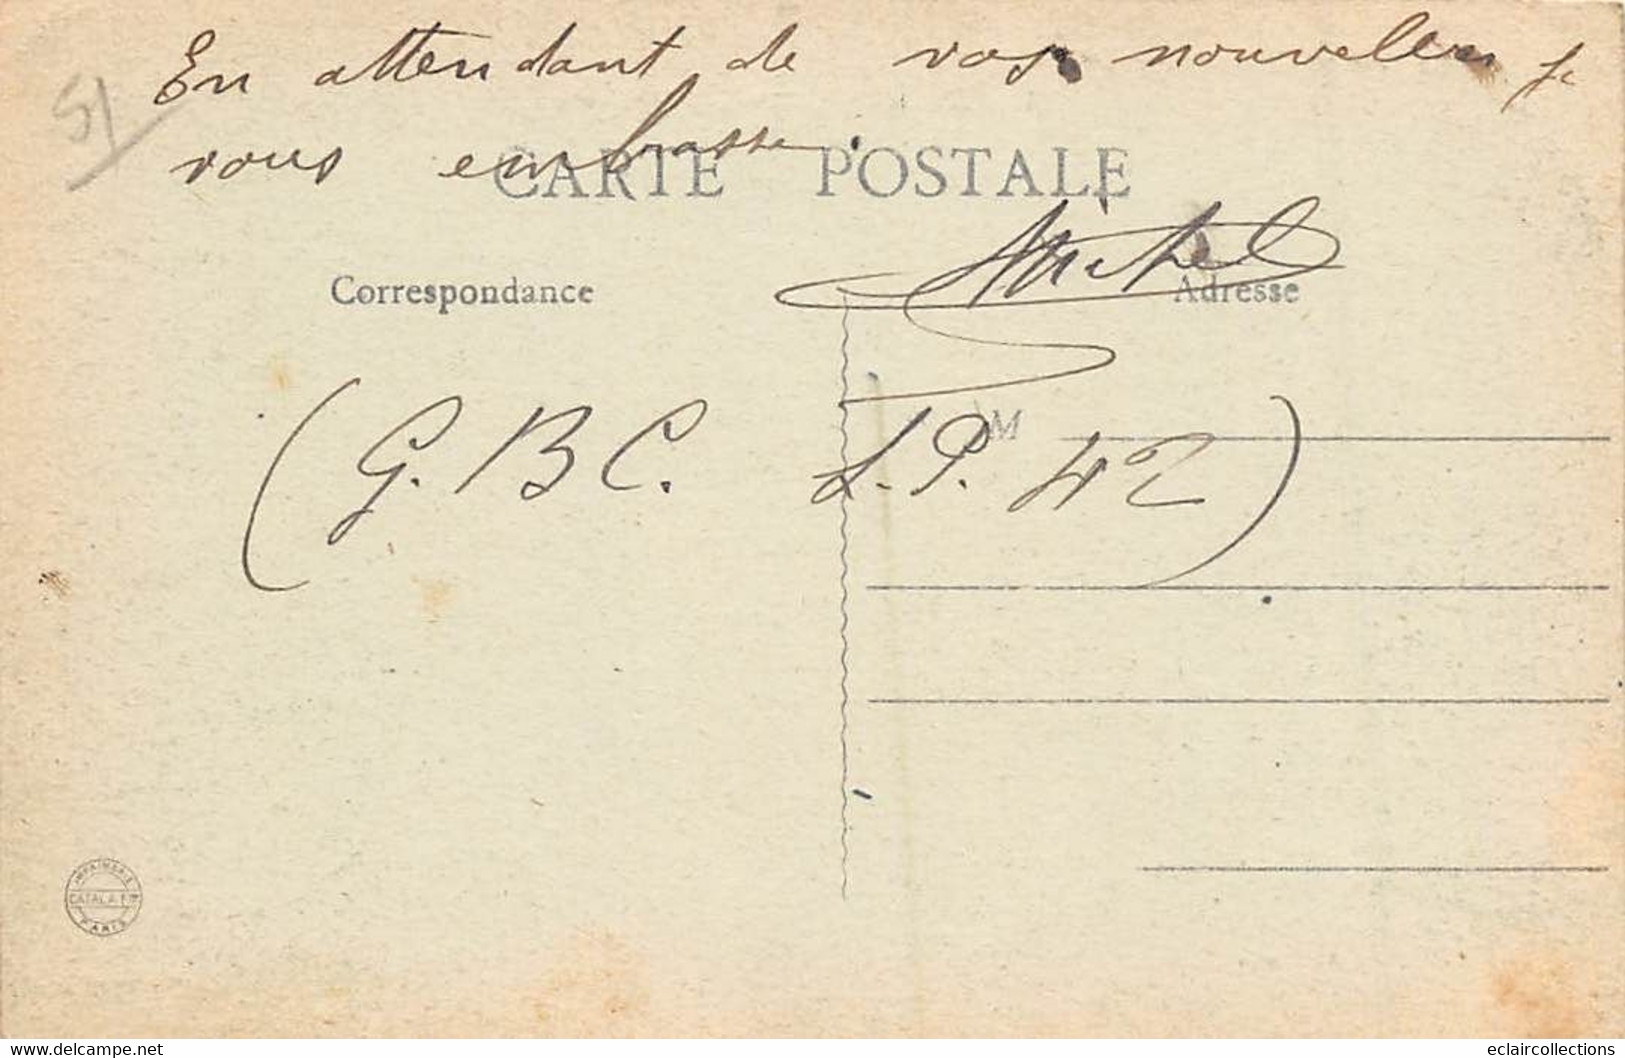 51
En attendant de vos nouvelles je
vous embrasse.
CARTE POSTALE
Michel
Correspondance
Adresse
(G. B C. S. P. 42)
M
IMPRIMERIE
CATALA FRES
PARIS
www.delcampe.net
eclaircollections